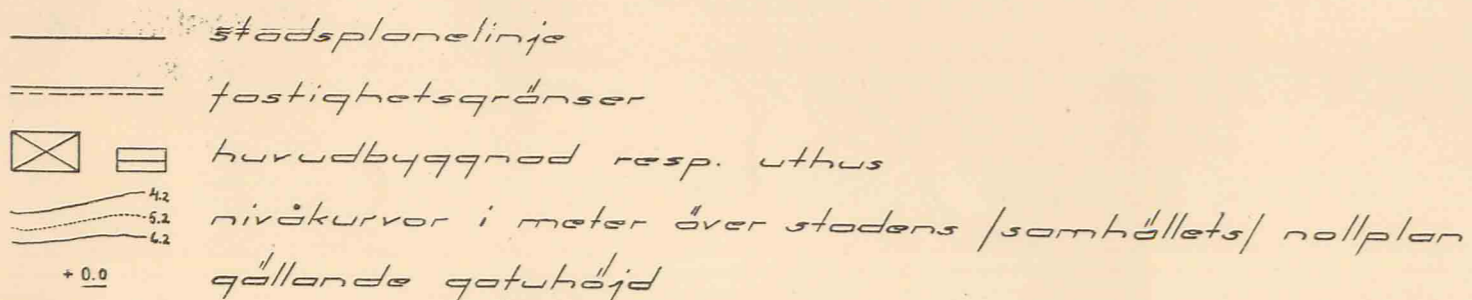 stadsplanelinje
fastighetsgränser
huvudbyggnad resp. uthus
4.2
5.2
6.2
nivåkurvor i meter över stadens /samhällets/ nollplan
+ 0.0 gällande gatuhöjd